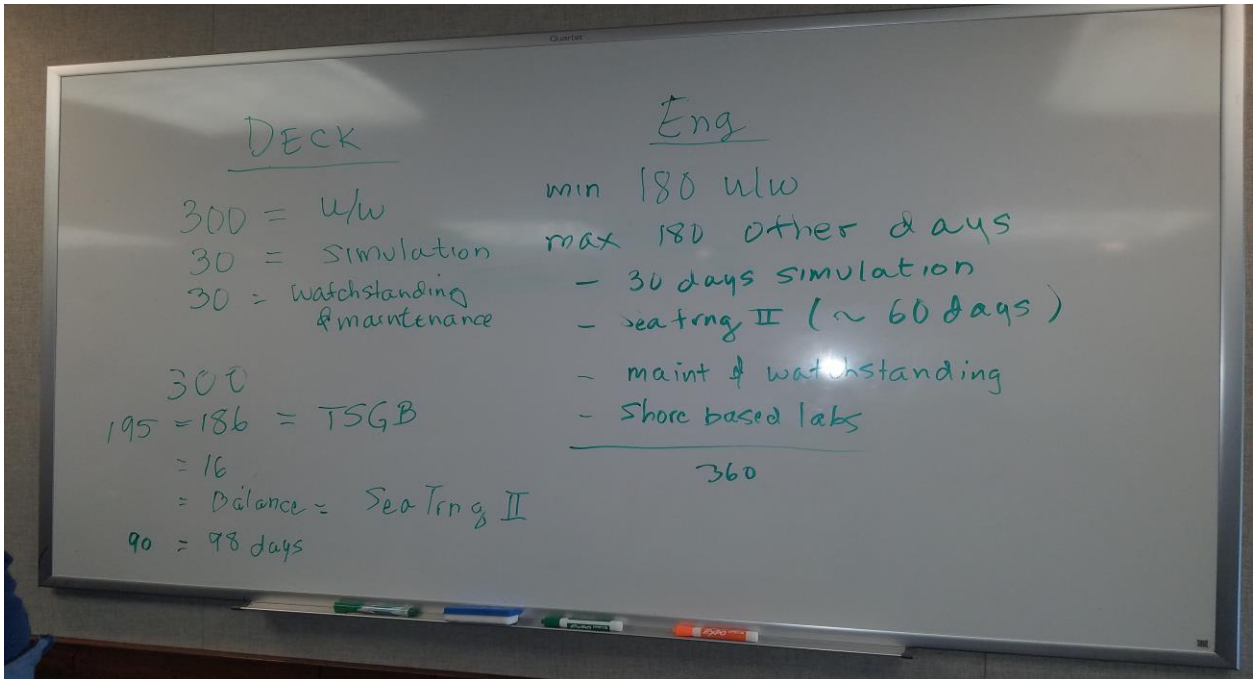 Quartet
DECK
300 = u/w
30 = simulation
30 = watchstanding
& maintenance
300
195 = 186 = TSGB
= 16
= Balance = Sea Trng II
90 = 98 days
Eng
min 180 u/w
max 180 other days
- 30 days simulation
- sea trng II (~ 60 days)
- maint & watchstanding
- Shore based labs
360
EXPO